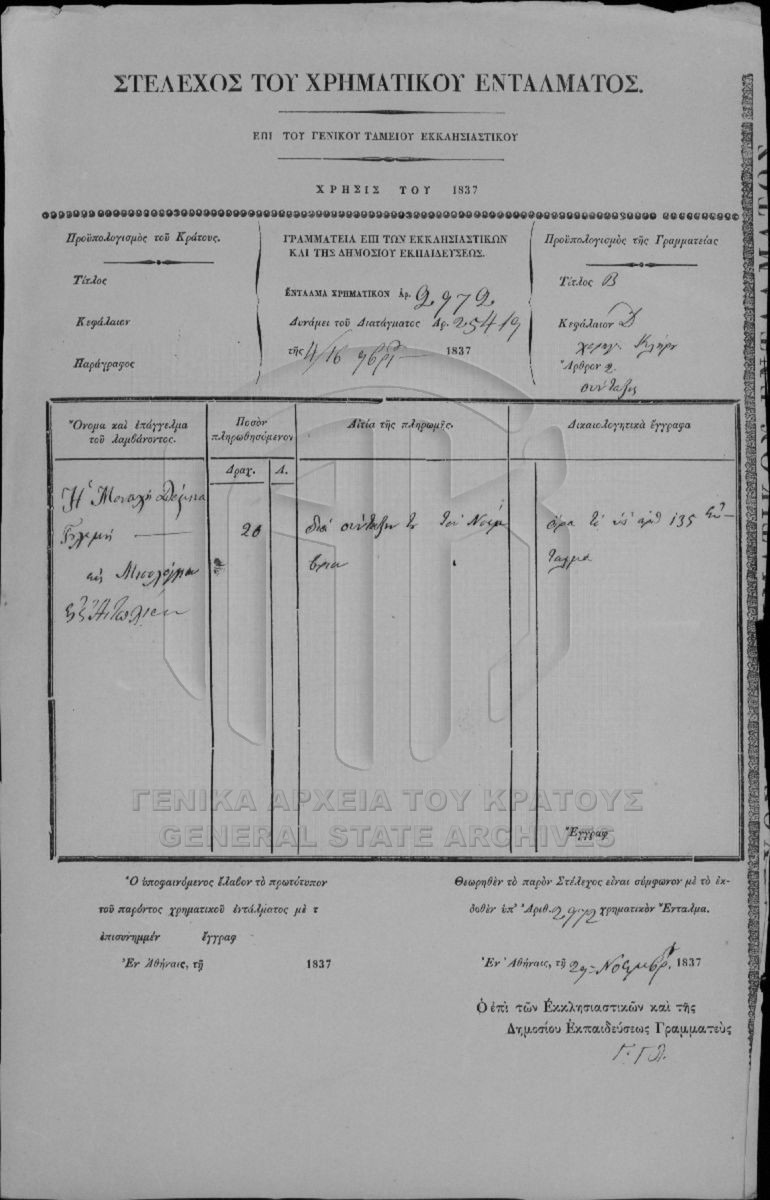 ΣΤΕΛΕΧΟΣ ΤΟΥ ΧΡΗΜΑΤΙΚΟΥ ΕΝΤΑΛΜΑΤΟΣ.
ΕΠΙ ΤΟΥ ΓΕΝΙΚΟΥ ΤΑΜΕΙΟΥ ΕΚΚΛΗΣΙΑΣΤΙΚΟΥ
ΧΡΗΣΙΣ ΤΟΥ 1837
Προϋπολογισμὸς τοῦ Κράτους.
Τίτλος
Κεφάλαιον
Παράγραφος
ΓΡΑΜΜΑΤΕΙΑ ΕΠΙ ΤΩΝ ΕΚΚΛΗΣΙΑΣΤΙΚΩΝ
ΚΑΙ ΤΗΣ ΔΗΜΟΣΙΟΥ ΕΚΠΑΙΔΕΥΣΕΩΣ.
ΕΝΤΑΛΜΑ ΧΡΗΜΑΤΙΚΟΝ Ἀρ. 2972
Δυνάμει τοῦ Διατάγματος Ἀρ. 25419
τῆς 4/16 9βρ 1837
Προϋπολογισμὸς τῆς Γραμματείας
Τίτλος Β
Κεφάλαιον Δ
Ἄρθρον 2
σύνταξις
Ὄνομα καὶ ἐπάγγελμα
τοῦ λαμβάνοντος.
Ποσὸν
πληρωθησόμενον
Αἰτία τῆς πληρωμῆς.
Δικαιολογητικὰ ἔγγραφα
Δραχ. Λ.
Ἡ Μοναχὴ
20 διὰ σύνταξιν τοῦ Νοεμ
βρίου
ὅρα τὸ ὑπ ἀρθ 135 ἔν
ταλμα
Ἔγγραφ
Ὁ ὑποφαινόμενος ἔλαβον τὸ πρωτότυπον
τοῦ παρόντος χρηματικοῦ ἐντάλματος μὲ τ
ἐπισυνημμέν ἔγγραφ
Ἐν Ἀθήναις, τῇ 1837
Θεωρηθὲν τὸ παρὸν Στέλεχος εἶναι σύμφωνον μὲ τὸ ἐκ-
δοθὲν ὑπ' Ἀριθ. 2972 χρηματικὸν Ἔνταλμα.
Ἐν Ἀθήναις, τῇ Νοεμβρ. 1837
Ὁ ἐπὶ τῶν Ἐκκλησιαστικῶν καὶ τῆς
Δημοσίου Ἐκπαιδεύσεως Γραμματεὺς
ΓΕΝΙΚΑ ΑΡΧΕΙΑ ΤΟΥ ΚΡΑΤΟΥΣ
GENERAL STATE ARCHIVES